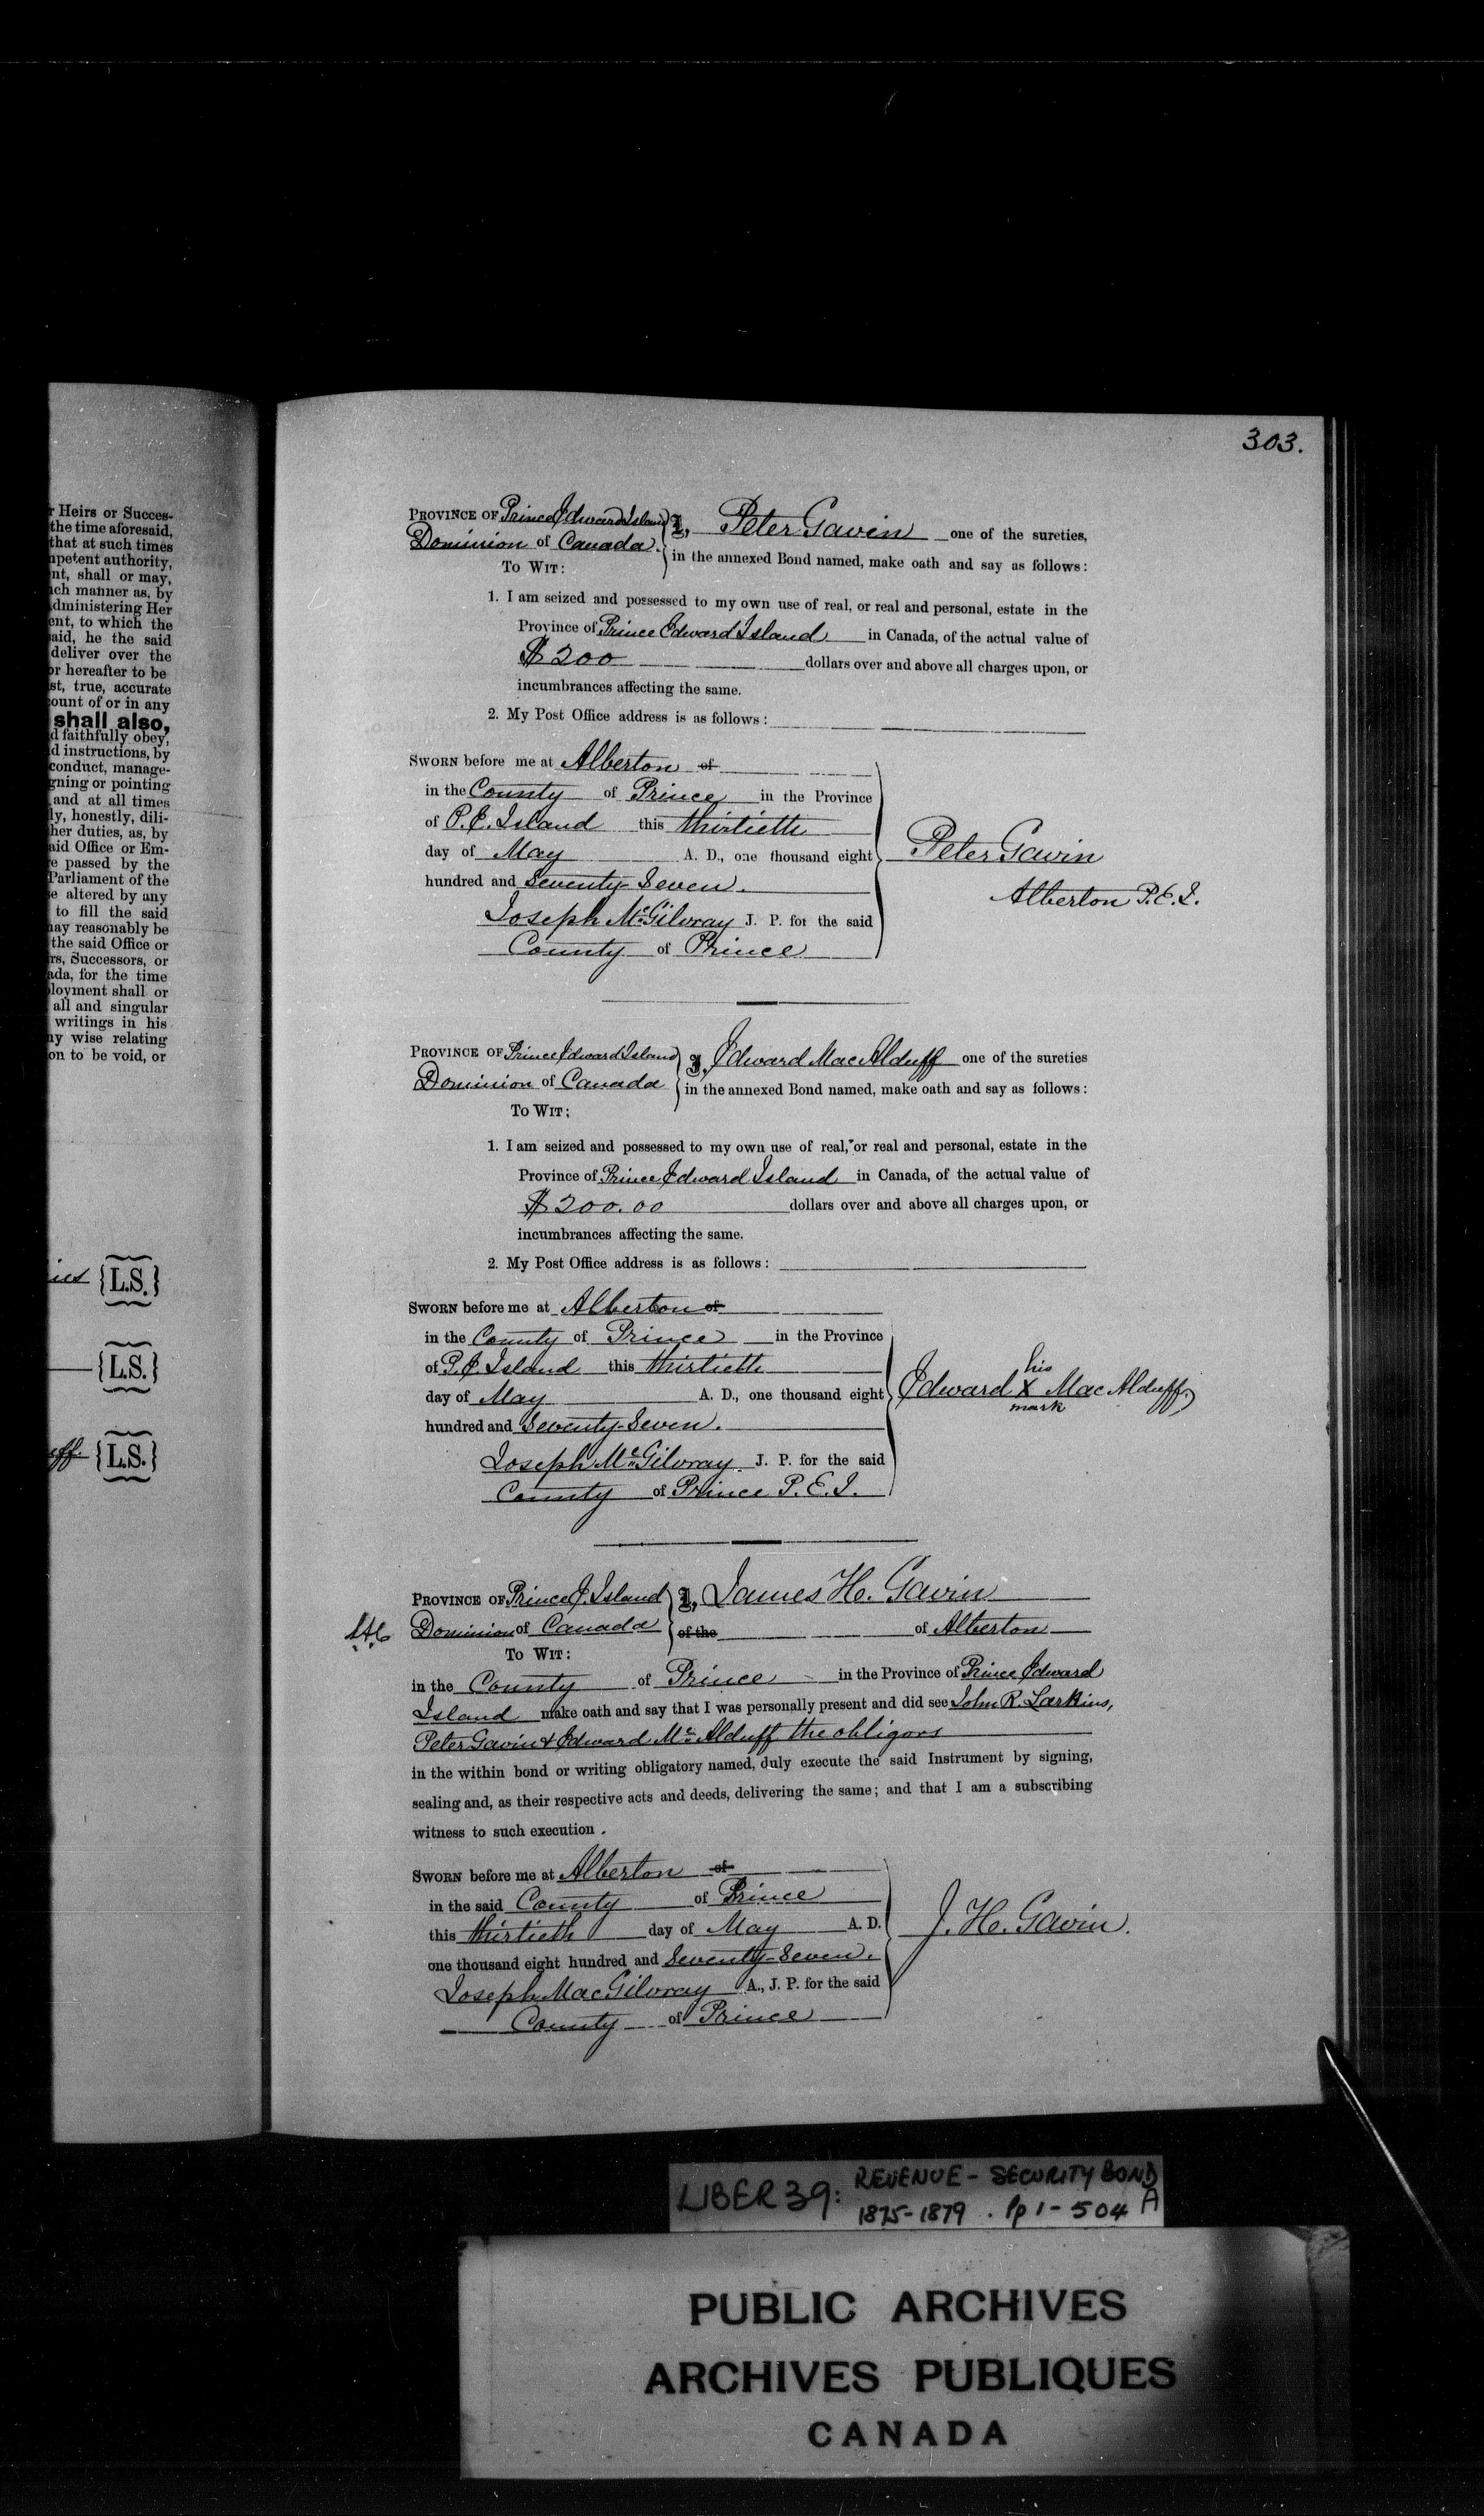 303.
r Heirs or Succes-
the time aforesaid,
that at such times
npetent authority,
nt, shall or may,
ich manner as, by
dministering Her
ent, to which the
aid, he the said
deliver over the
or hereafter to be
st, true, accurate
ount of or in any
shall also,
d faithfully obey,
d instructions, by
conduct, manage-
gning or pointing
and at all times
ly, honestly, dili-
her duties, as, by
aid Office or Em-
e passed by the
Parliament of the
e altered by any
to fill the said
nay reasonably be
the said Office or
rs, Successors, or
ada, for the time
loyment shall or
all and singular
writings in his
ny wise relating
on to be void, or
{L.S.}
{L.S.}
eff. {L.S.}
PROVINCE OF Prince Edward Island } I, Peter Gavin one of the sureties,
Dominion of Canada. in the annexed Bond named, make oath and say as follows:
TO WIT:
1. I am seized and possessed to my own use of real, or real and personal, estate in the
Province of Prince Edward Island in Canada, of the actual value of
$200 dollars over and above all charges upon, or
incumbrances affecting the same.
2. My Post Office address is as follows:
SWORN before me at Alberton of
in the County of Prince in the Province
of P. E. Island this thirtieth
day of May A. D., one thousand eight
hundred and Seventy-Seven.
Joseph McGilvray J. P. for the said
County of Prince
Peter Gavin
Alberton P.E.I.
PROVINCE OF Prince Edward Island } I, Edward MacAlduff one of the sureties
Dominion of Canada in the annexed Bond named, make oath and say as follows:
TO WIT:
1. I am seized and possessed to my own use of real, or real and personal, estate in the
Province of Prince Edward Island in Canada, of the actual value of
$200.00 dollars over and above all charges upon, or
incumbrances affecting the same.
2. My Post Office address is as follows:
SWORN before me at Alberton of
in the County of Prince in the Province
of P. E. Island this thirtieth
day of May A. D., one thousand eight
hundred and Seventy-Seven.
Joseph McGilvray. J. P. for the said
County of Prince P. E. I.
his
Edward X MacAlduff
mark
PROVINCE OF Prince E. Island } I, James H. Gavin
Dominion of Canada of the of Alberton
TO WIT:
in the County of Prince in the Province of Prince Edward
Island make oath and say that I was personally present and did see John R. Larkins,
Peter Gavin & Edward McAlduff the obligors
in the within bond or writing obligatory named, duly execute the said Instrument by signing,
sealing and, as their respective acts and deeds, delivering the same; and that I am a subscribing
witness to such execution.
SWORN before me at Alberton of
in the said County of Prince
this thirtieth day of May A. D.
one thousand eight hundred and Seventy-Seven.
Joseph MacGilvray A., J. P. for the said
County of Prince
J. H. Gavin.
LIBER 39: REVENUE - SECURITY BOND
1875-1879. Pp 1-504 A
PUBLIC ARCHIVES
ARCHIVES PUBLIQUES
CANADA